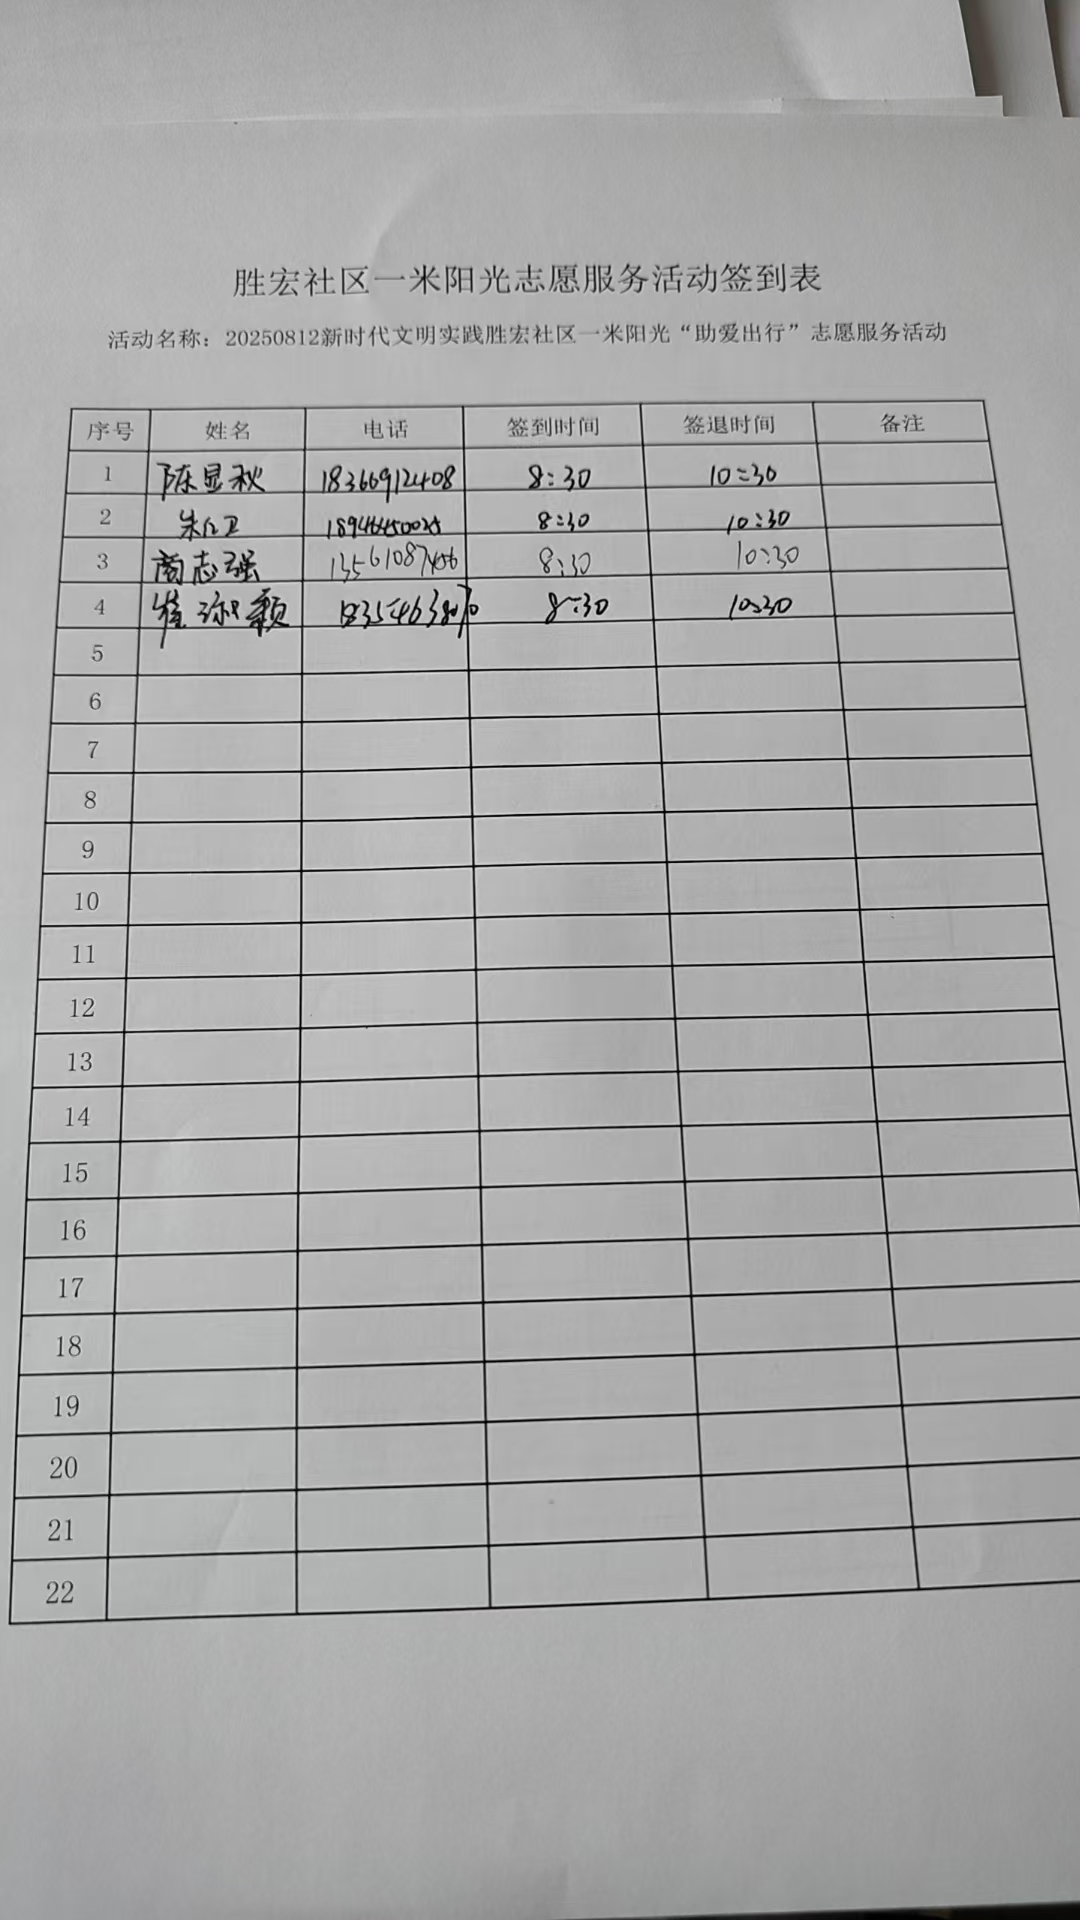 胜宏社区一米阳光志愿服务活动签到表
活动名称：20250812新时代文明实践胜宏社区一米阳光“助爱出行”志愿服务活动
序号 姓名 电话 签到时间 签退时间 备注
1 陈显秋 18366912408 8:30 10:30
2 8:30 10:30
3 商志强 13561087456 8:30 10:30
4 8:30 10:30
5
6
7
8
9
10
11
12
13
14
15
16
17
18
19
20
21
22